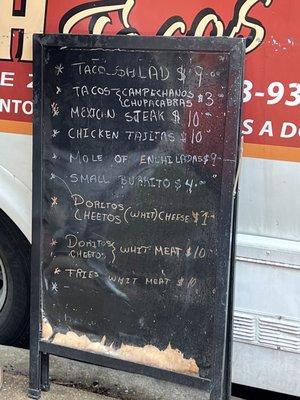 Tacos
TACO SHLAD $9.00
TACOS {CAMPECHANOS
CHUPACABRAS $3
MEXICIN STEAK $10
CHICKEN TAJITAS $10
MOLE OF ENHILADAS $9
SMALL BURRITO $4.00
DORITOS
CHEETOS (WHIT) CHEESE $7
DORITOS
CHEETOS } WHIT MEAT $10
FRIES WHIT MEAT $10